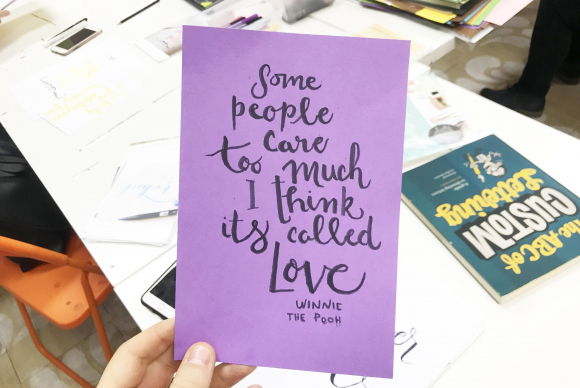 Some
people
care
too much
I think
its called
Love
WINNIE
THE POOH
The ABC of
CUSTOM
Lettering